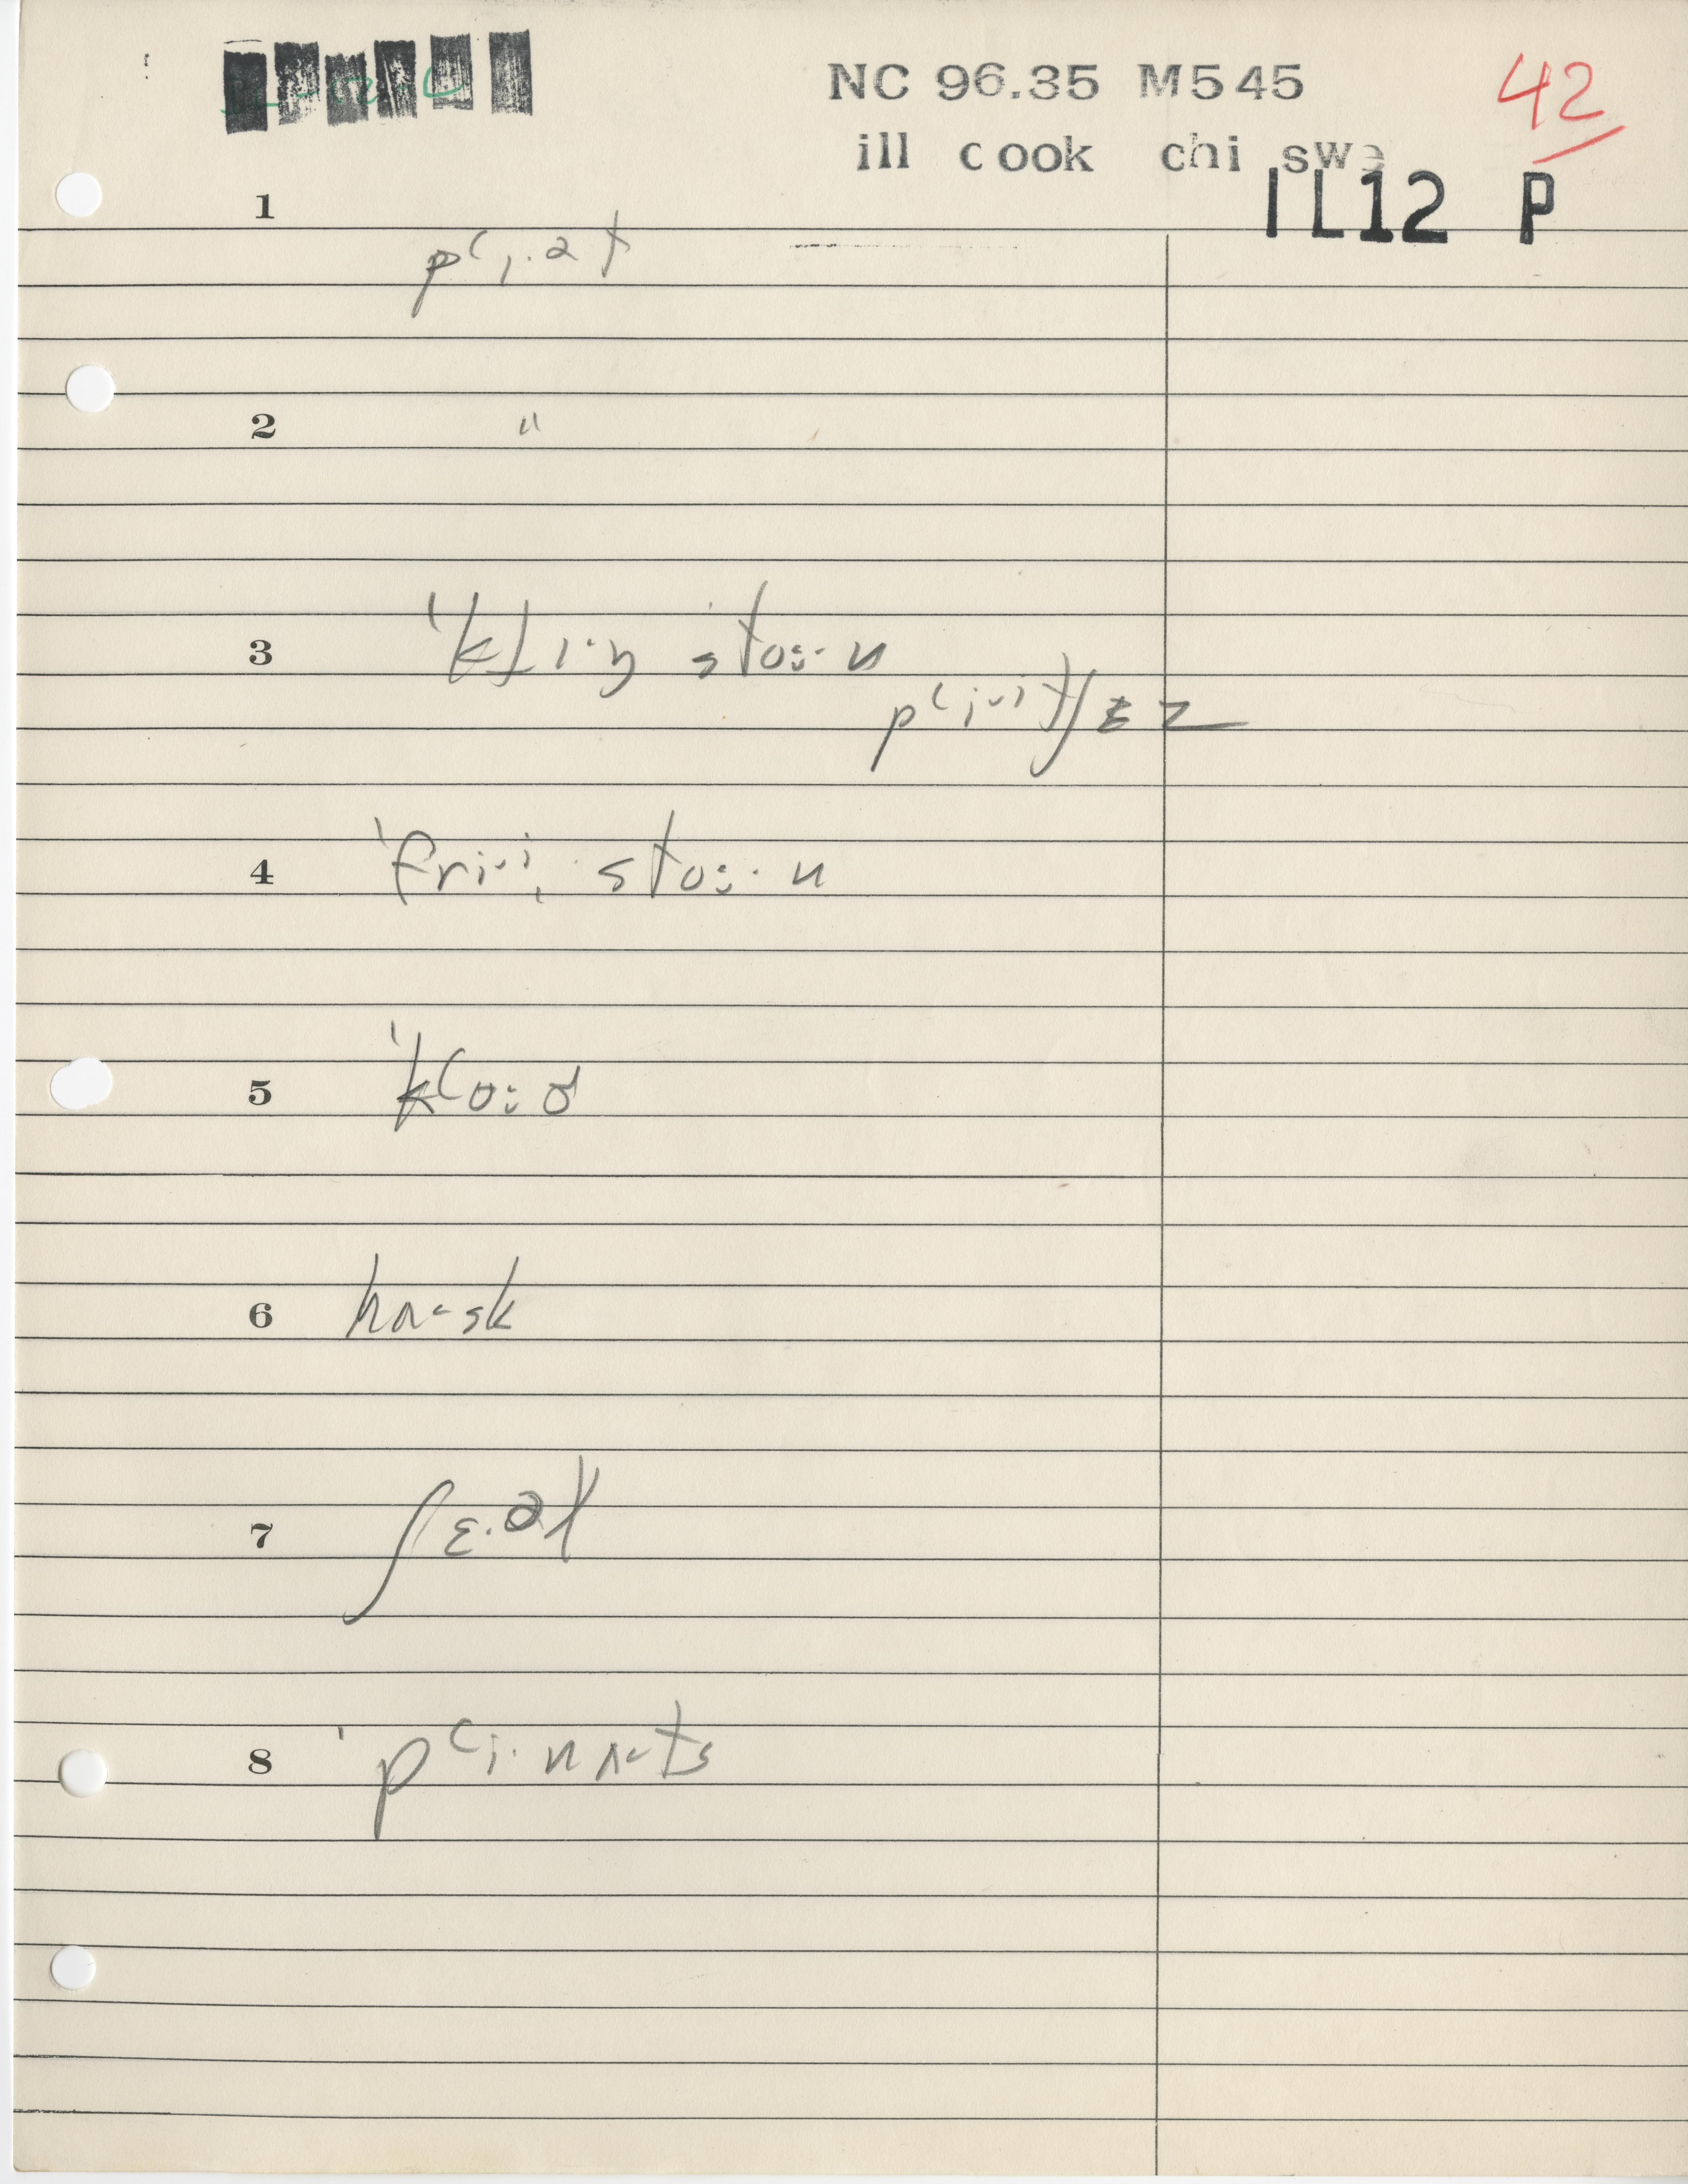 NC 96.35 M545
42
ill cook chi swe
IL12 P
1
pʻɪ·ət
2 "
3 ˈklɪ·ŋ sto:·n
pʻi·ɪtʃɛz
4 ˈfri·i̜ sto:·n
5 ˈkʻo:ɚ
6 hʌ˂sk
7 ʃɛ·ət
8 ˈpʻi·nʌ˂ts